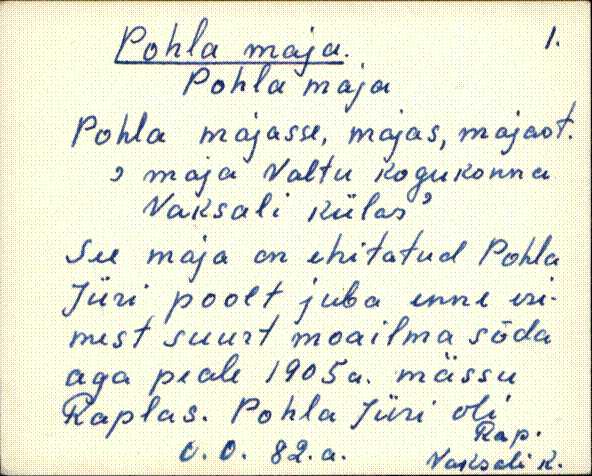 Pohla maja. 1.
Pohla maja
Pohla majasse, majas, majast.
, maja Valtu kogukonna
Vaksali külas'
See maja on ehitatud Pohla
Jüri poolt juba enne esi-
mest suurt moailma sõda
aga peale 1905a. mässu
Raplas. Pohla Jüri oli
O. O. 82.a.
Rap.
Vaksali k.